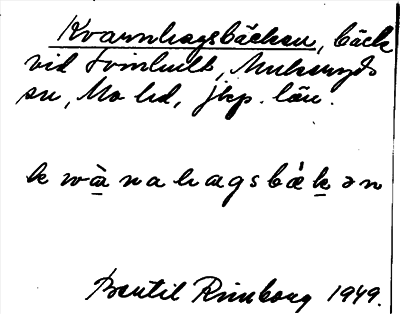 Kvarnhagsbäcken, bäck
vid Svinhult, Mulseryds
sn, Mo hd, Jkp. län.
kwàrnahagsbäkən
Bertil Rimborg 1949.